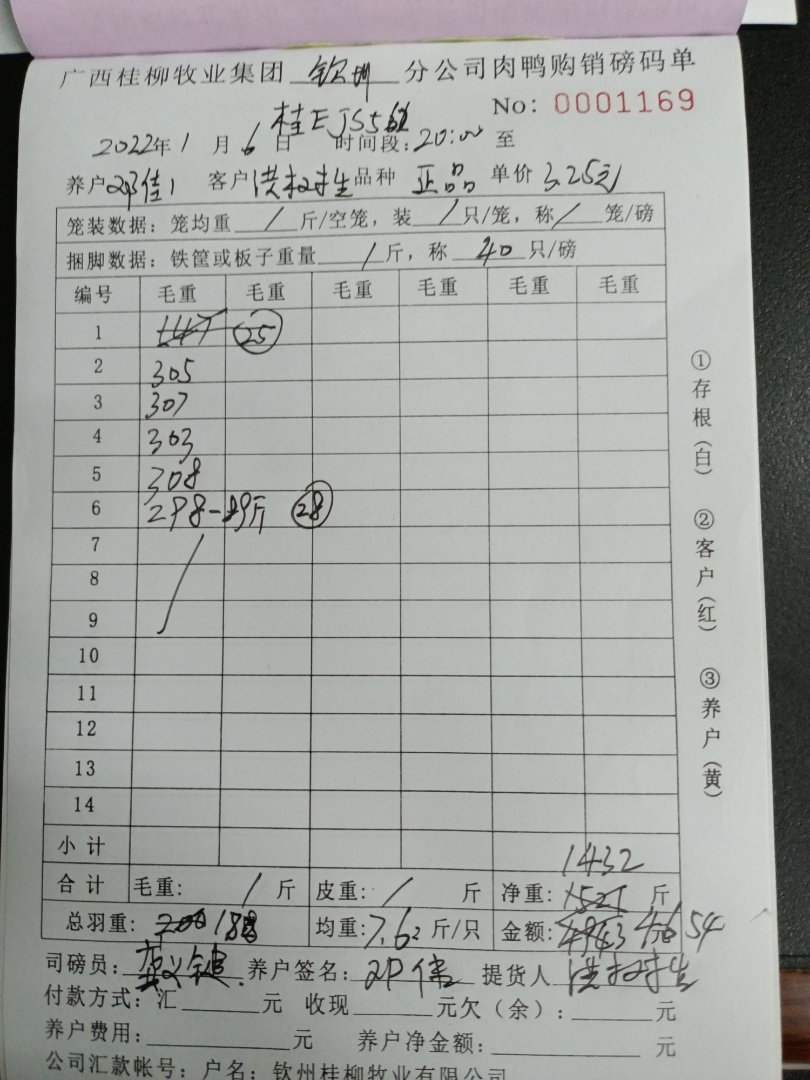 广西桂柳牧业集团 钦州 分公司肉鸭购销磅码单
No: 0001169
桂EJS5
2022年1月6日 时间段:20:00 至
养户 邓佳1 客户 洪权生 品种 正品 单价 3.25元
笼装数据: 笼均重 / 斤/空笼, 装 / 只/笼, 称 / 笼/磅
捆脚数据: 铁筐或板子重量 / 斤, 称 40 只/磅
编号 毛重 毛重 毛重 毛重 毛重 毛重
1 25
2 305
3 307
4 303
5 308
6 298-89斤 28
7
8
9
10
11
12
13
14
小计
1432
合计 毛重: / 斤 皮重: / 斤 净重: 1521 斤
总羽重: 200 188 均重: 7.62 斤/只 金额: 4943 4654
司磅员: 养户签名: 邓佳 提货人 洪权生
付款方式: 汇 元 收现 元欠(余): 元
养户费用: 元 养户净金额: 元
公司汇款帐号: 户名: 钦州桂柳牧业有限公司
①存根(白) ②客户(红) ③养户(黄)